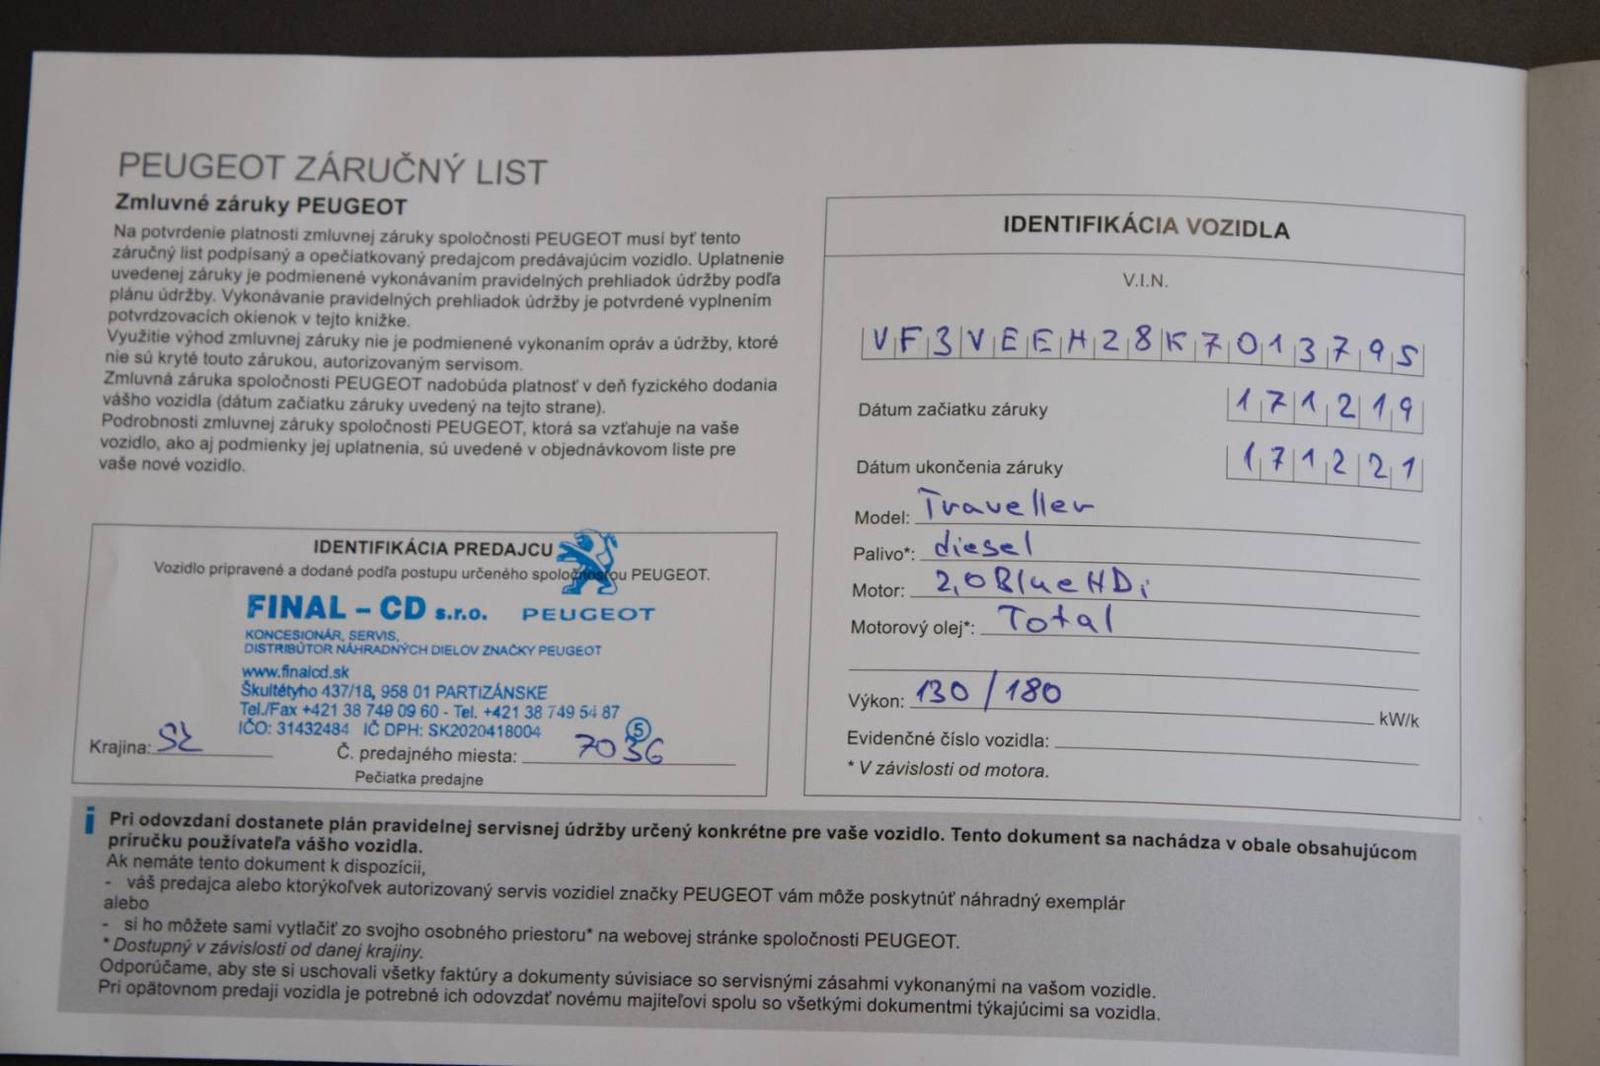 PEUGEOT ZÁRUČNÝ LIST
Zmluvné záruky PEUGEOT
Na potvrdenie platnosti zmluvnej záruky spoločnosti PEUGEOT musí byť tento
záručný list podpísaný a opečiatkovaný predajcom predávajúcim vozidlo. Uplatnenie
uvedenej záruky je podmienené vykonávaním pravidelných prehliadok údržby podľa
plánu údržby. Vykonávanie pravidelných prehliadok údržby je potvrdené vyplnením
potvrdzovacích okienok v tejto knižke.
Využitie výhod zmluvnej záruky nie je podmienené vykonaním opráv a údržby, ktoré
nie sú kryté touto zárukou, autorizovaným servisom.
Zmluvná záruka spoločnosti PEUGEOT nadobúda platnosť v deň fyzického dodania
vášho vozidla (dátum začiatku záruky uvedený na tejto strane).
Podrobnosti zmluvnej záruky spoločnosti PEUGEOT, ktorá sa vzťahuje na vaše
vozidlo, ako aj podmienky jej uplatnenia, sú uvedené v objednávkovom liste pre
vaše nové vozidlo.
IDENTIFIKÁCIA PREDAJCU
Vozidlo pripravené a dodané podľa postupu určeného spoločnosťou PEUGEOT.
FINAL – CD s.r.o. PEUGEOT
KONCESIONÁR, SERVIS,
DISTRIBÚTOR NÁHRADNÝCH DIELOV ZNAČKY PEUGEOT
www.finalcd.sk
Škultétyho 437/18, 958 01 PARTIZÁNSKE
Tel./Fax +421 38 749 09 60 - Tel. +421 38 749 54 87
IČO: 31432484 IČ DPH: SK2020418004 5
Krajina: Č. predajného miesta: 7036
Pečiatka predajne
IDENTIFIKÁCIA VOZIDLA
V.I.N.
VF3VEEH28K7013795
Dátum začiatku záruky 171219
Dátum ukončenia záruky 171221
Model: Traveller
Palivo*: diesel
Motor: 2,0 BlueHDi
Motorový olej*: Total
Výkon: 130 / 180 kW/k
Evidenčné číslo vozidla:
* V závislosti od motora.
i Pri odovzdaní dostanete plán pravidelnej servisnej údržby určený konkrétne pre vaše vozidlo. Tento dokument sa nachádza v obale obsahujúcom
príručku používateľa vášho vozidla.
Ak nemáte tento dokument k dispozícii,
- váš predajca alebo ktorýkoľvek autorizovaný servis vozidiel značky PEUGEOT vám môže poskytnúť náhradný exemplár
alebo
- si ho môžete sami vytlačiť zo svojho osobného priestoru* na webovej stránke spoločnosti PEUGEOT.
* Dostupný v závislosti od danej krajiny.
Odporúčame, aby ste si uschovali všetky faktúry a dokumenty súvisiace so servisnými zásahmi vykonanými na vašom vozidle.
Pri opätovnom predaji vozidla je potrebné ich odovzdať novému majiteľovi spolu so všetkými dokumentmi týkajúcimi sa vozidla.